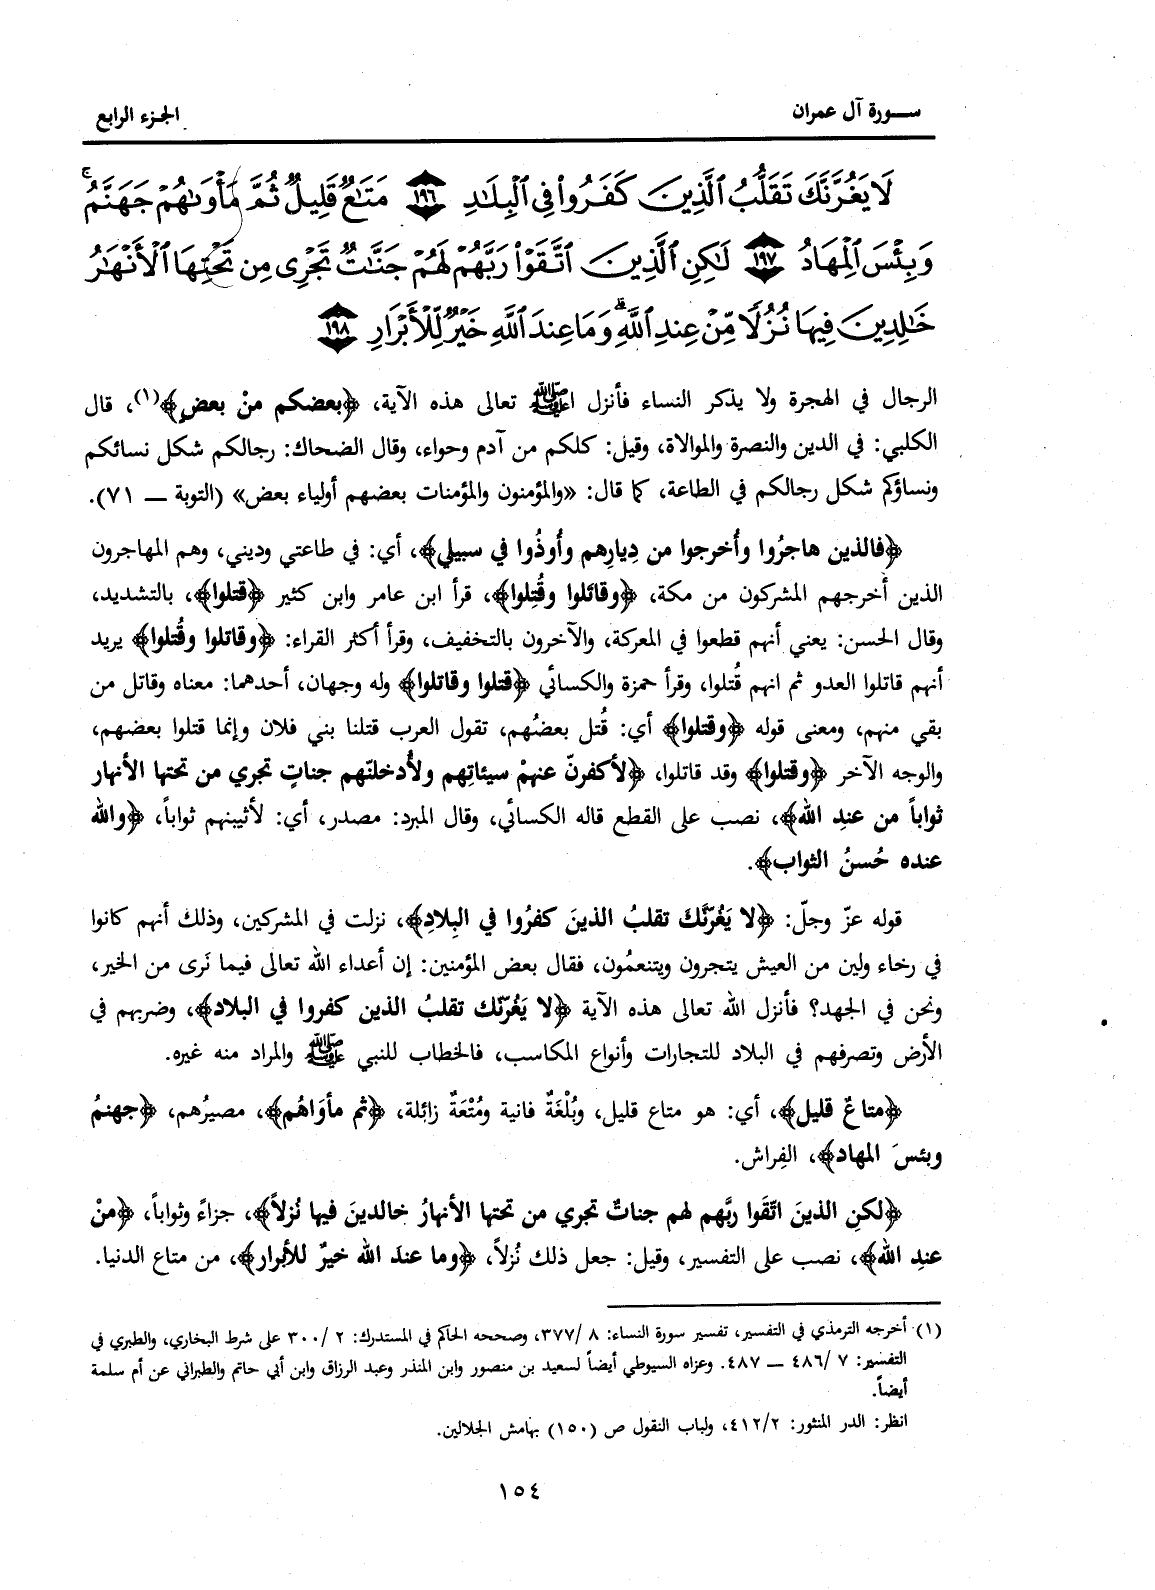 سورة آل عمران
الجزء الرابع
لَا يَغُرَّنَّكَ تَقَلُّبُ ٱلَّذِينَ كَفَرُوا۟ فِي ٱلْبِلَٰدِ ١٩٦ مَتَٰعٌ قَلِيلٌ ثُمَّ مَأْوَىٰهُمْ جَهَنَّمُ ۚ
وَبِئْسَ ٱلْمِهَادُ ١٩٧ لَٰكِنِ ٱلَّذِينَ ٱتَّقَوْا۟ رَبَّهُمْ لَهُمْ جَنَّٰتٌ تَجْرِى مِن تَحْتِهَا ٱلْأَنْهَٰرُ
خَٰلِدِينَ فِيهَا نُزُلًا مِّنْ عِندِ ٱللَّهِ ۗ وَمَا عِندَ ٱللَّهِ خَيْرٌ لِّلْأَبْرَارِ ١٩٨
الرجال في الهجرة ولا يذكر النساء فأنزل ﷺ تعالى هذه الآية، ﴿بعضكم منْ بعضٍ﴾(١)، قال
الكلبي: في الدين والنصرة والموالاة، وقيل: كلكم من آدم وحواء، وقال الضحاك: رجالكم شكل نسائكم
ونساؤكم شكل رجالكم في الطاعة، كما قال: «والمؤمنون والمؤمنات بعضهم أولياء بعض» (التوبة — ٧١).
﴿فالذين هاجرُوا وأُخرجوا من دِيارِهم وأُوذُوا في سبيلي﴾، أي: في طاعتي وديني، وهم المهاجرون
الذين أخرجهم المشركون من مكة، ﴿وقاتَلوا وقُتِلوا﴾، قرأ ابن عامر وابن كثير ﴿قتلوا﴾، بالتشديد،
وقال الحسن: يعني أنهم قطعوا في المعركة، والآخرون بالتخفيف، وقرأ أكثر القراء: ﴿وقاتلوا وقُتلوا﴾ يريد
أنهم قاتلوا العدو ثم انهم قُتلوا، وقرأ حمزة والكسائي ﴿قتلوا وقاتلوا﴾ وله وجهان، أحدهما: معناه وقاتل من
بقي منهم، ومعنى قوله ﴿وقتلوا﴾ أي: قُتل بعضُهم، تقول العرب قتلنا بني فلان وإنما قتلوا بعضهم،
والوجه الآخر ﴿وقتلوا﴾ وقد قاتلوا، ﴿لأكفرنّ عنهمْ سيئاتِهم ولأُدخلنّهم جناتٍ تجري من تحتها الأنهار
ثواباً من عندِ الله﴾، نصب على القطع قاله الكسائي، وقال المبرد: مصدر، أي: لأثيبنهم ثواباً، ﴿والله
عنده حُسنُ الثواب﴾.
قوله عزّ وجلّ: ﴿لا يَغُرّنَّك تقلبُ الذينَ كفرُوا في البِلادِ﴾، نزلت في المشركين، وذلك أنهم كانوا
في رخاء ولين من العيش يتجرون ويتنعمُون، فقال بعض المؤمنين: إن أعداء الله تعالى فيما نَرى من الخير،
ونحن في الجهد؟ فأنزل الله تعالى هذه الآية ﴿لا يَغُرّنّك تقلبُ الذين كفروا في البلاد﴾، وضربهم في
الأرض وتصرفهم في البلاد للتجارات وأنواع المكاسب، فالخطاب للنبي ﷺ والمراد منه غيره.
﴿متاعٌ قليل﴾، أي: هو متاع قليل، وبُلْغَةٌ فانية ومُتْعَةٌ زائلة، ﴿ثم مأوَاهُم﴾، مصيرُهم، ﴿جهنمُ
وبئسَ المهاد﴾، الفِراش.
﴿لكنِ الذينَ اتّقَوا ربَّهم لهم جناتٌ تجري من تحتها الأنهارُ خالدينَ فيها نُزلاً﴾، جزاءً وثواباً، ﴿منْ
عندِ الله﴾، نصب على التفسير، وقيل: جعل ذلك نُزلاً، ﴿وما عندَ الله خيرٌ للأبرار﴾، من متاع الدنيا.
(١) أخرجه الترمذي في التفسير، تفسير سورة النساء: ٨ /٣٧٧، وصححه الحاكم في المستدرك: ٢ /٣٠٠ على شرط البخاري، والطبري في
التفسير: ٧ /٤٨٦ — ٤٨٧. وعزاه السيوطي أيضاً لسعيد بن منصور وابن المنذر وعبد الرزاق وابن أبي حاتم والطبراني عن أم سلمة
أيضاً.
انظر: الدر المنثور: ٤١٢/٢، ولباب النقول ص (١٥٠) بهامش الجلالين.
١٥٤